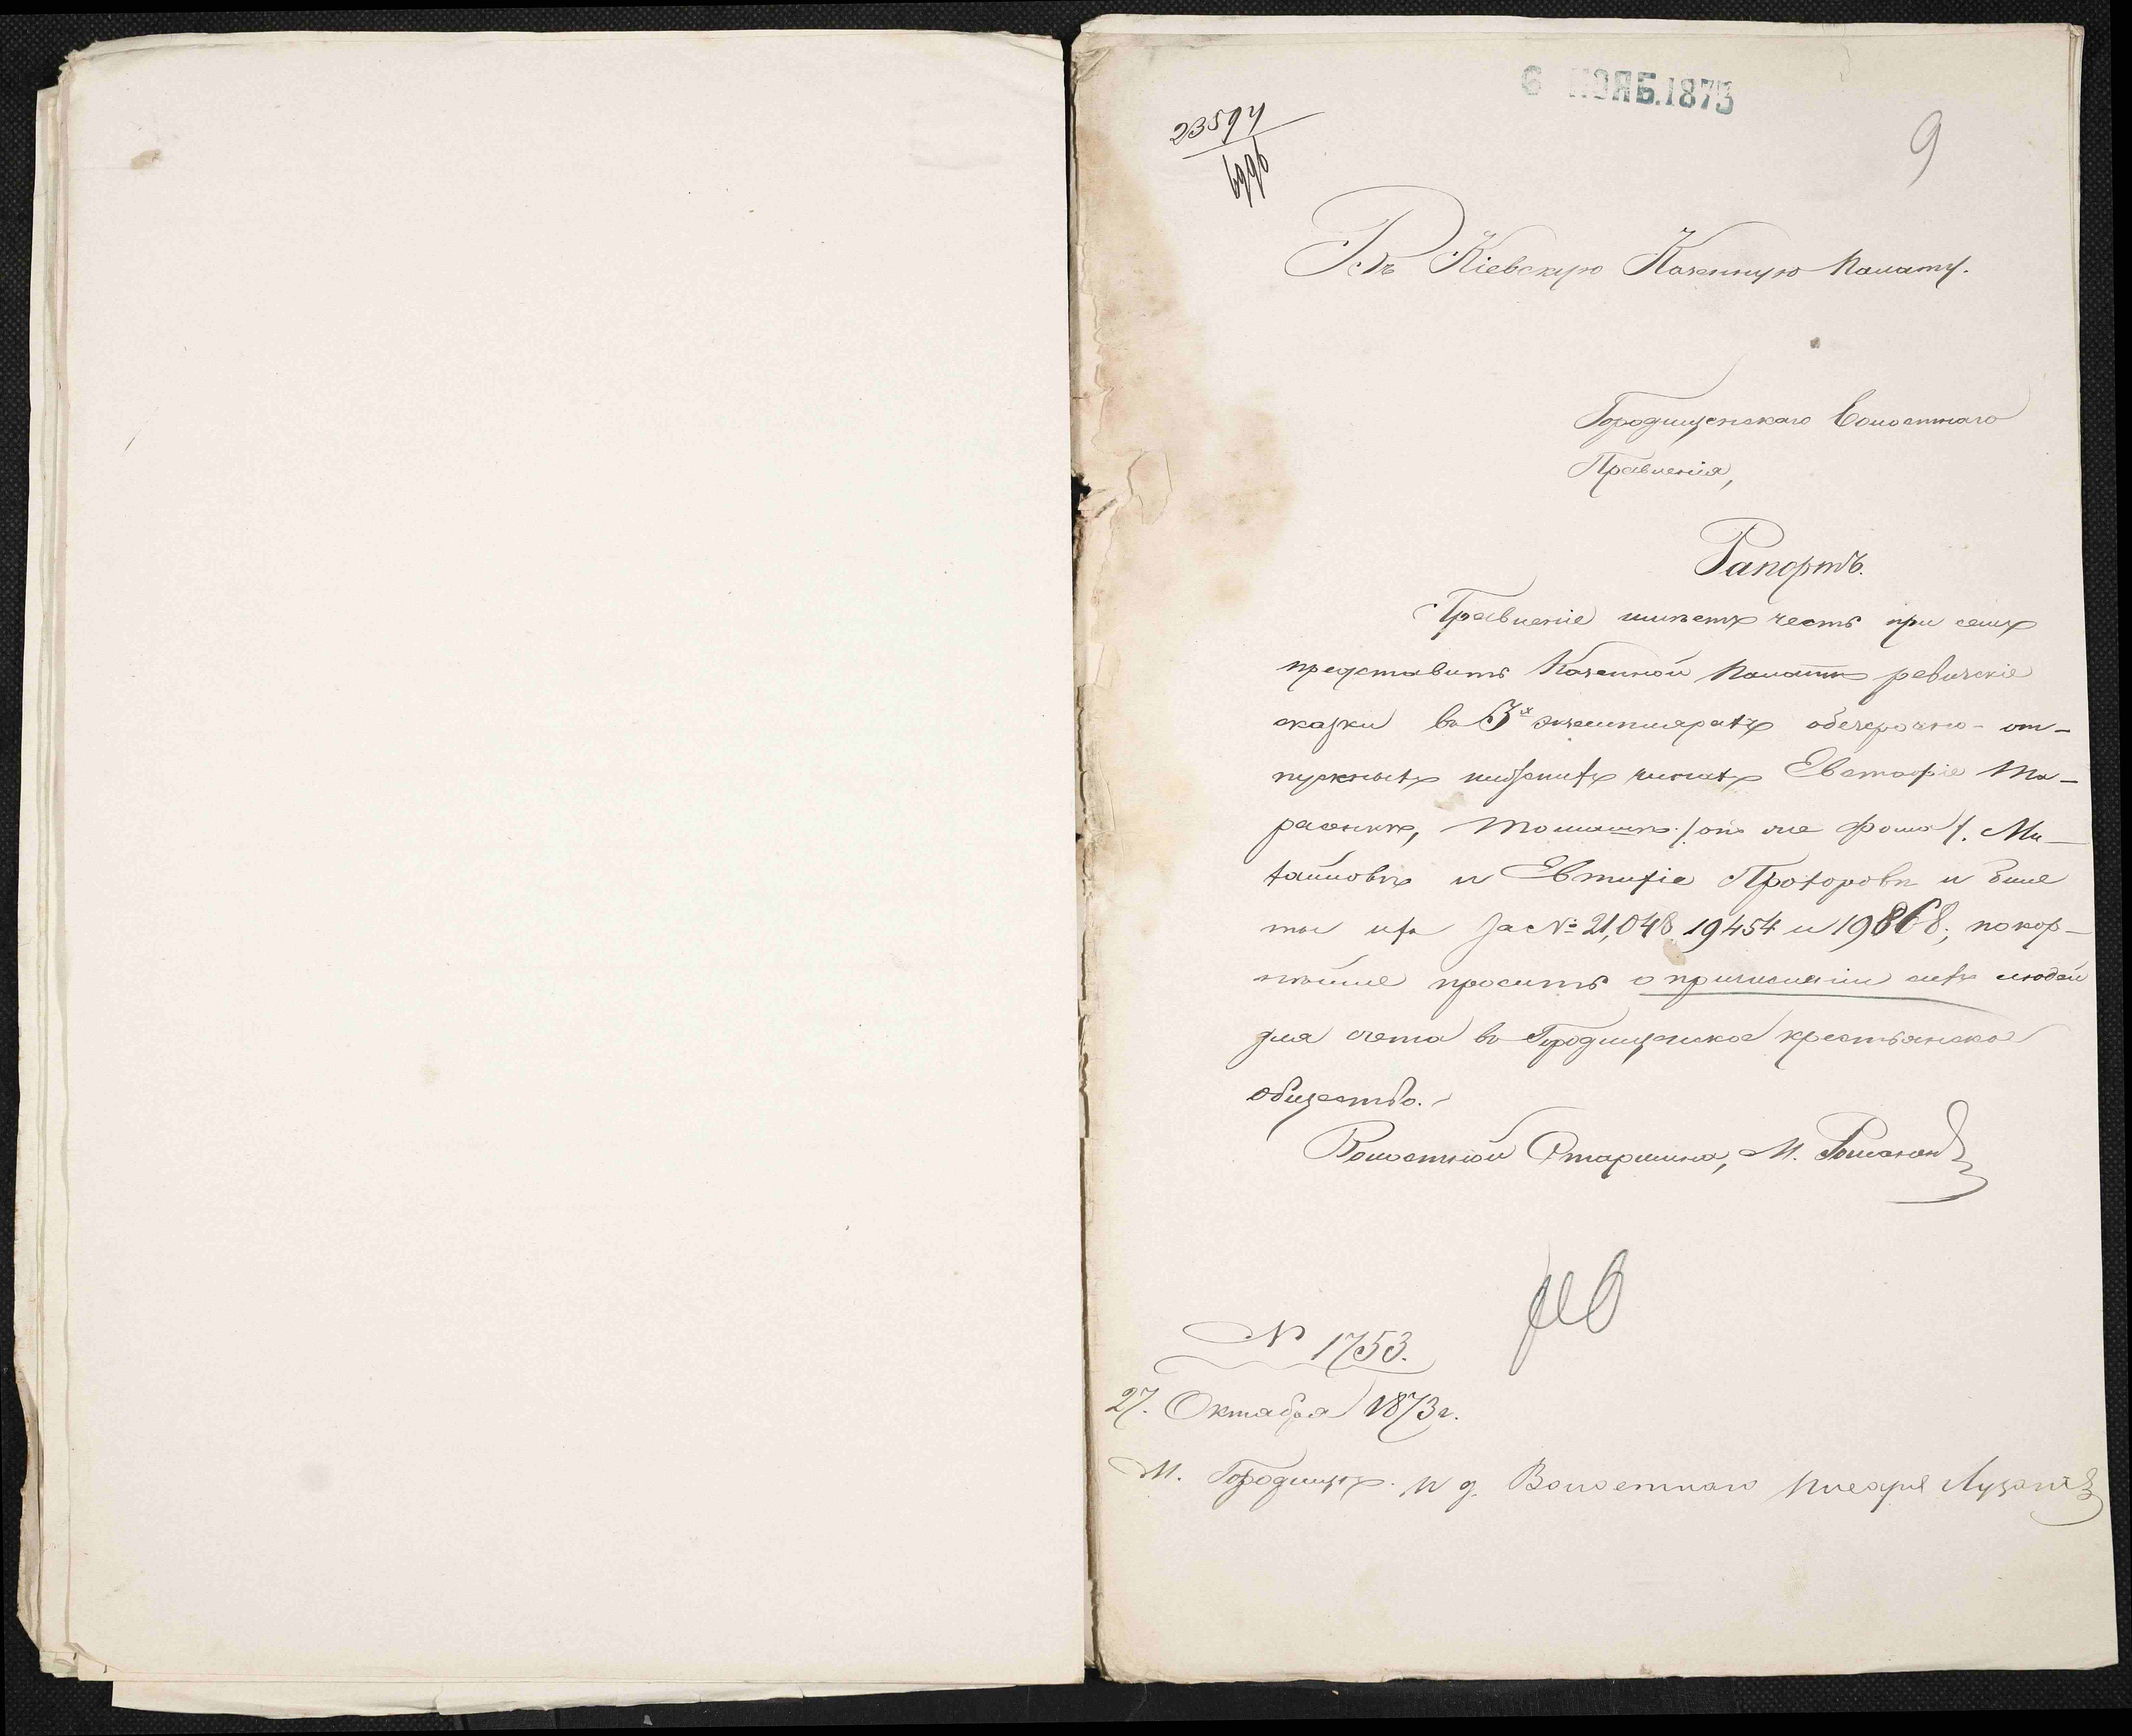 6 НОЯБ.1873
23594
6996
9
Въ Кіевскую Казенную Палату.
Городищенскаго Волостнаго
Правленія,
Рапортъ.
Правленіе имѣетъ честь при семъ
представить Казенной Палатѣ ревизскіе
сказки въ 3х экземплярахъ обезсрочно-от-
пускныхъ нижнихъ чинахъ Евстафіе Та-
расенкѣ, Томашѣ /онъ же Фома/.
и Евтихіе Прохоровѣ и биле
ты ихъ за №: 21,048 19454 и 19868; покор-
нѣйше просить о причисленіи сихъ людей
для счета въ Городищенское крестьянское
общество.
Волостной Старшина, М. Романов
N 1753.
27. Октября 1873 г.
М. Городище. И д. Волостнаго Писаря